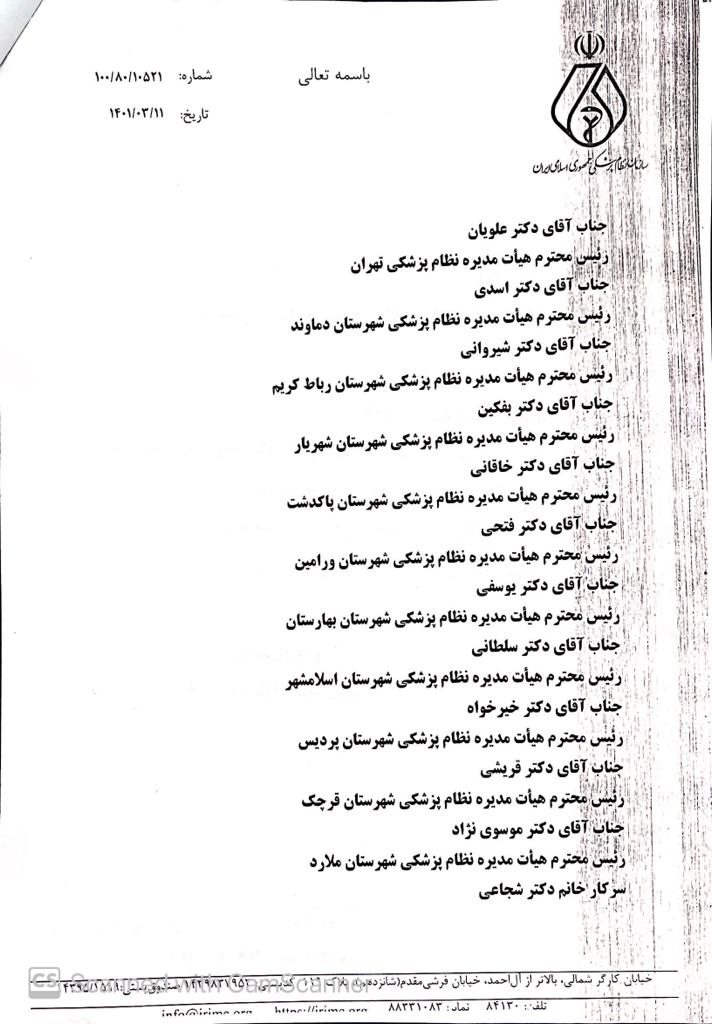 باسمه تعالی
شماره: ۱۰۰/۸۰/۱۰۵۲۱
تاریخ: ۱۴۰۱/۰۳/۱۱
سازمان نظام پزشکی جمهوری اسلامی ایران
جناب آقای دکتر علویان
رئیس محترم هیأت مدیره نظام پزشکی تهران
جناب آقای دکتر اسدی
رئیس محترم هیأت مدیره نظام پزشکی شهرستان دماوند
جناب آقای دکتر شیروانی
رئیس محترم هیأت مدیره نظام پزشکی شهرستان رباط کریم
جناب آقای دکتر بفکین
رئیس محترم هیأت مدیره نظام پزشکی شهرستان شهریار
جناب آقای دکتر خاقانی
رئیس محترم هیأت مدیره نظام پزشکی شهرستان پاکدشت
جناب آقای دکتر فتحی
رئیس محترم هیأت مدیره نظام پزشکی شهرستان ورامین
جناب آقای دکتر یوسفی
رئیس محترم هیأت مدیره نظام پزشکی شهرستان بهارستان
جناب آقای دکتر سلطانی
رئیس محترم هیأت مدیره نظام پزشکی شهرستان اسلامشهر
جناب آقای دکتر خیرخواه
رئیس محترم هیأت مدیره نظام پزشکی شهرستان پردیس
جناب آقای دکتر قریشی
رئیس محترم هیأت مدیره نظام پزشکی شهرستان قرچک
جناب آقای دکتر موسوی نژاد
رئیس محترم هیأت مدیره نظام پزشکی شهرستان ملارد
سرکار خانم دکتر شجاعی
خیابان کارگر شمالی، بالاتر از آل‌احمد، خیابان فرشی‌مقدم(شانزدهم)، پلاک
تلفن: ۸۴۱۳۰ نمابر: ۸۸۳۳۱۰۸۳
https://irimc.org info@irimc.org
CS Scanned with CamScanner